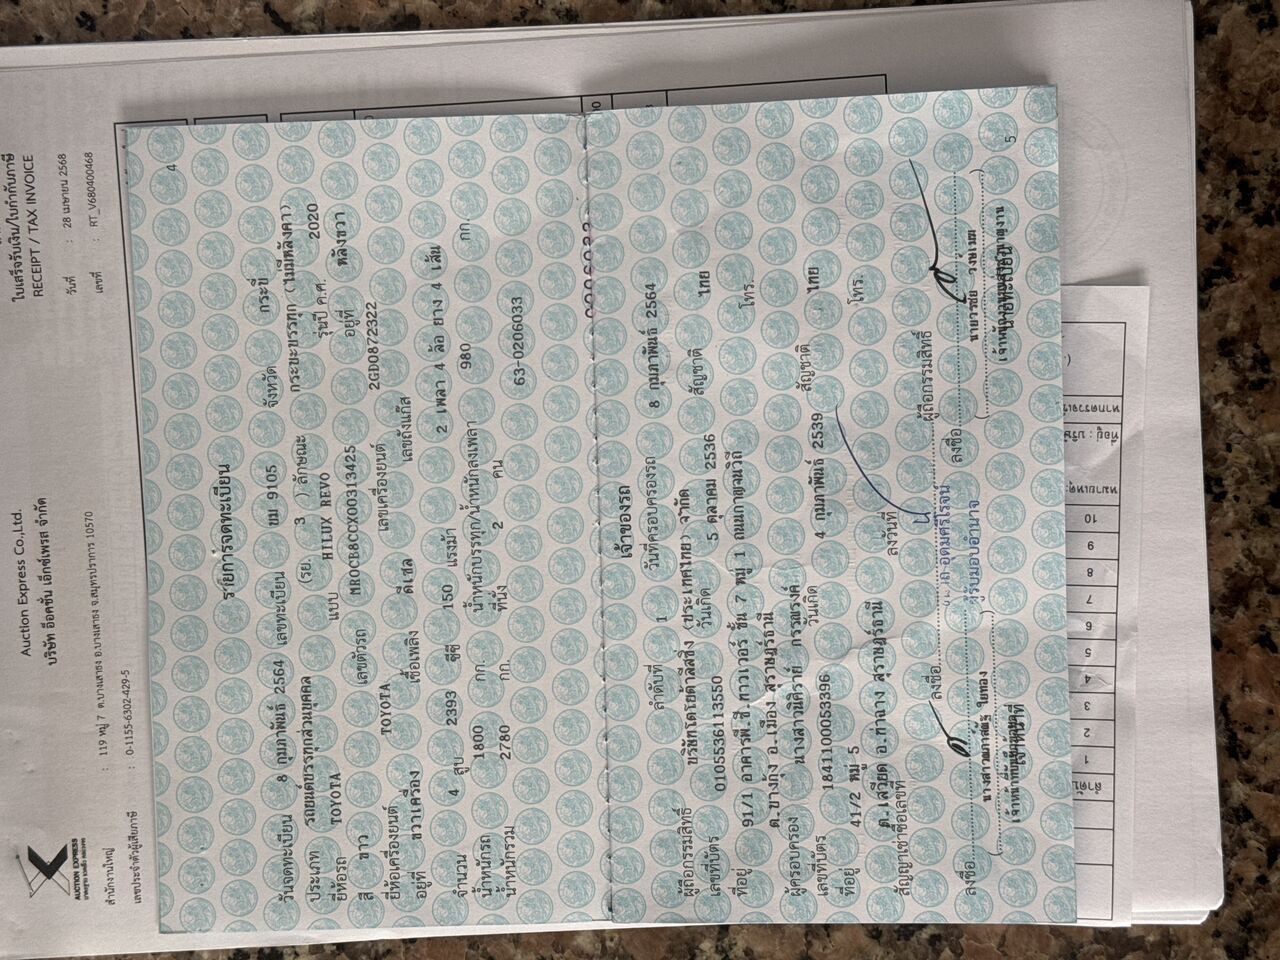 ใบเสร็จรับเงิน/ใบกำกับภาษี
RECEIPT / TAX INVOICE
วันที่ : 28 เมษายน 2568
เลขที่ : RT_V680400468
Auction Express Co.,Ltd.
บริษัท อ๊อคชั่น เอ็กซ์เพรส จำกัด
AUCTION EXPRESS
สำนักงานใหญ่ : 119 หมู่ 7 ต.บางเสาธง อ.บางเสาธง จ.สมุทรปราการ 10570
เลขประจำตัวผู้เสียภาษี : 0-1155-6302-429-5
4
รายการจดทะเบียน
วันจดทะเบียน 8 กุมภาพันธ์ 2564 เลขทะเบียน ขม 9105 จังหวัด กระบี่
ประเภท รถยนต์บรรทุกส่วนบุคคล (รย. 3 ) ลักษณะ กระบะบรรทุก (ไม่มีหลังคา)
ยี่ห้อรถ TOYOTA แบบ HILUX REVO รุ่นปี ค.ศ. 2020
สี ขาว เลขตัวรถ MR0CB8CCX00313425 อยู่ที่ หลังขวา
ยี่ห้อเครื่องยนต์ TOYOTA เลขเครื่องยนต์ 2GD0872322
อยู่ที่ ขวาเครื่อง เชื้อเพลิง ดีเซล เลขถังแก๊ส
จำนวน 4 สูบ 2393 ซีซี 150 แรงม้า 2 เพลา 4 ล้อ ยาง 4 เส้น
น้ำหนักรถ 1800 กก. น้ำหนักบรรทุก/น้ำหนักลงเพลา 980 กก.
น้ำหนักรวม 2780 กก. ที่นั่ง 2 คน 63-0206033
เจ้าของรถ
ลำดับที่ 1 วันที่ครอบครองรถ 8 กุมภาพันธ์ 2564
ผู้ถือกรรมสิทธิ์ บริษัทโตโยต้าลีสซิ่ง (ประเทศไทย) จำกัด
เลขที่บัตร 0105536113550 วันเกิด 5 ตุลาคม 2536 สัญชาติ ไทย
ที่อยู่ 91/1 อาคารพี.ซี.ทาวเวอร์ ชั้น 7 หมู่ 1 ถนนกาญจนวิถี
ต.บางกุ้ง อ.เมือง สุราษฎร์ธานี โทร.
ผู้ครอบครอง นางสาวนิศราย์ กรณรงค์
เลขที่บัตร 1841100053396 วันเกิด 4 กุมภาพันธ์ 2539 สัญชาติ ไทย
ที่อยู่ 41/2 หมู่ 5
ต.เสวียด อ.ท่าฉาง สุราษฎร์ธานี โทร.
สัญญาเช่าซื้อเลขที่ ลงวันที่
ลงชื่อ ผู้ถือกรรมสิทธิ์
ผู้รับมอบอำนาจ
ลงชื่อ ลงชื่อ
5
ลำดับ
1
2
3
4
5
6
7
8
9
10